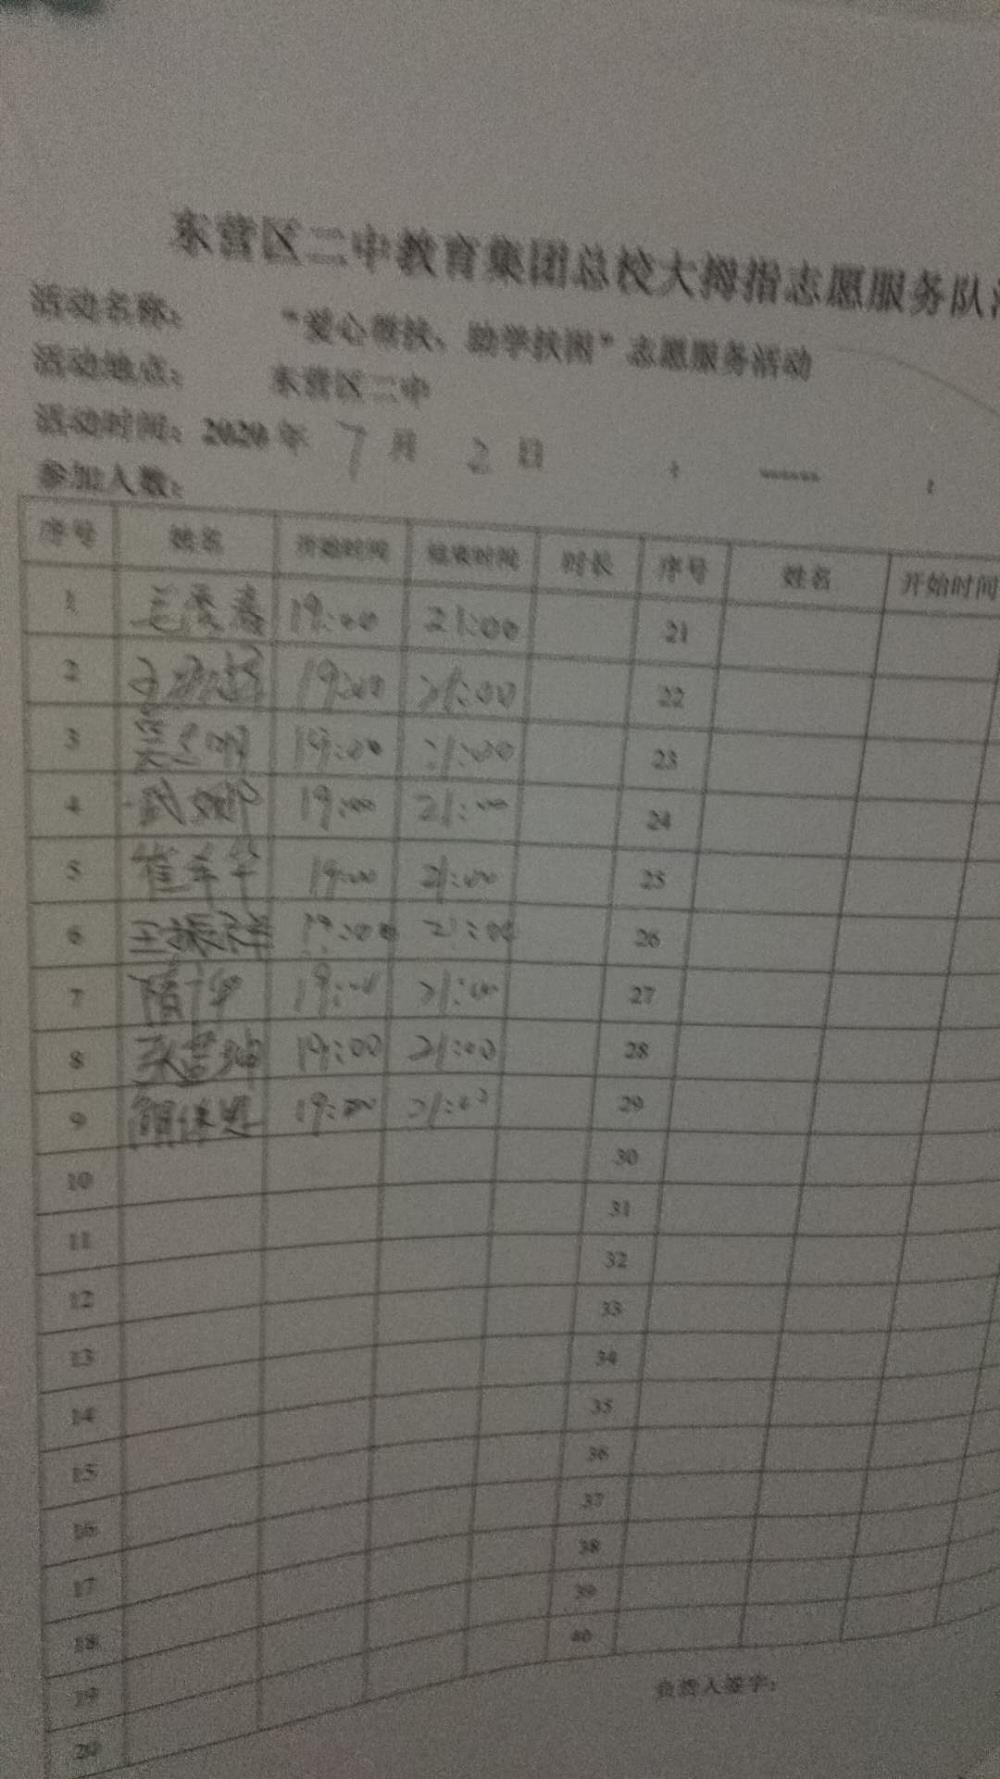 东营区二中教育集团总校大拇指志愿服务队
活动名称： “爱心帮扶、助学扶困”志愿服务活动
活动地点： 东营区二中
活动时间：2020年 7 月 2 日 : ------ :
参加人数：
序号 姓名 开始时间 结束时间 时长 序号 姓名 开始时间
1 19:00 21:00 21
2 19:00 21:00 22
3 19:00 21:00 23
4 19:00 21:00 24
5 19:00 21:00 25
6 王振祥 19:00 21:00 26
7 19:00 21:00 27
8 19:00 21:00 28
9 19:00 21:00 29
10 30
11 31
12 32
13 33
14 34
15 35
16 36
17 37
18 38
19 39
20 40
负责人签字：